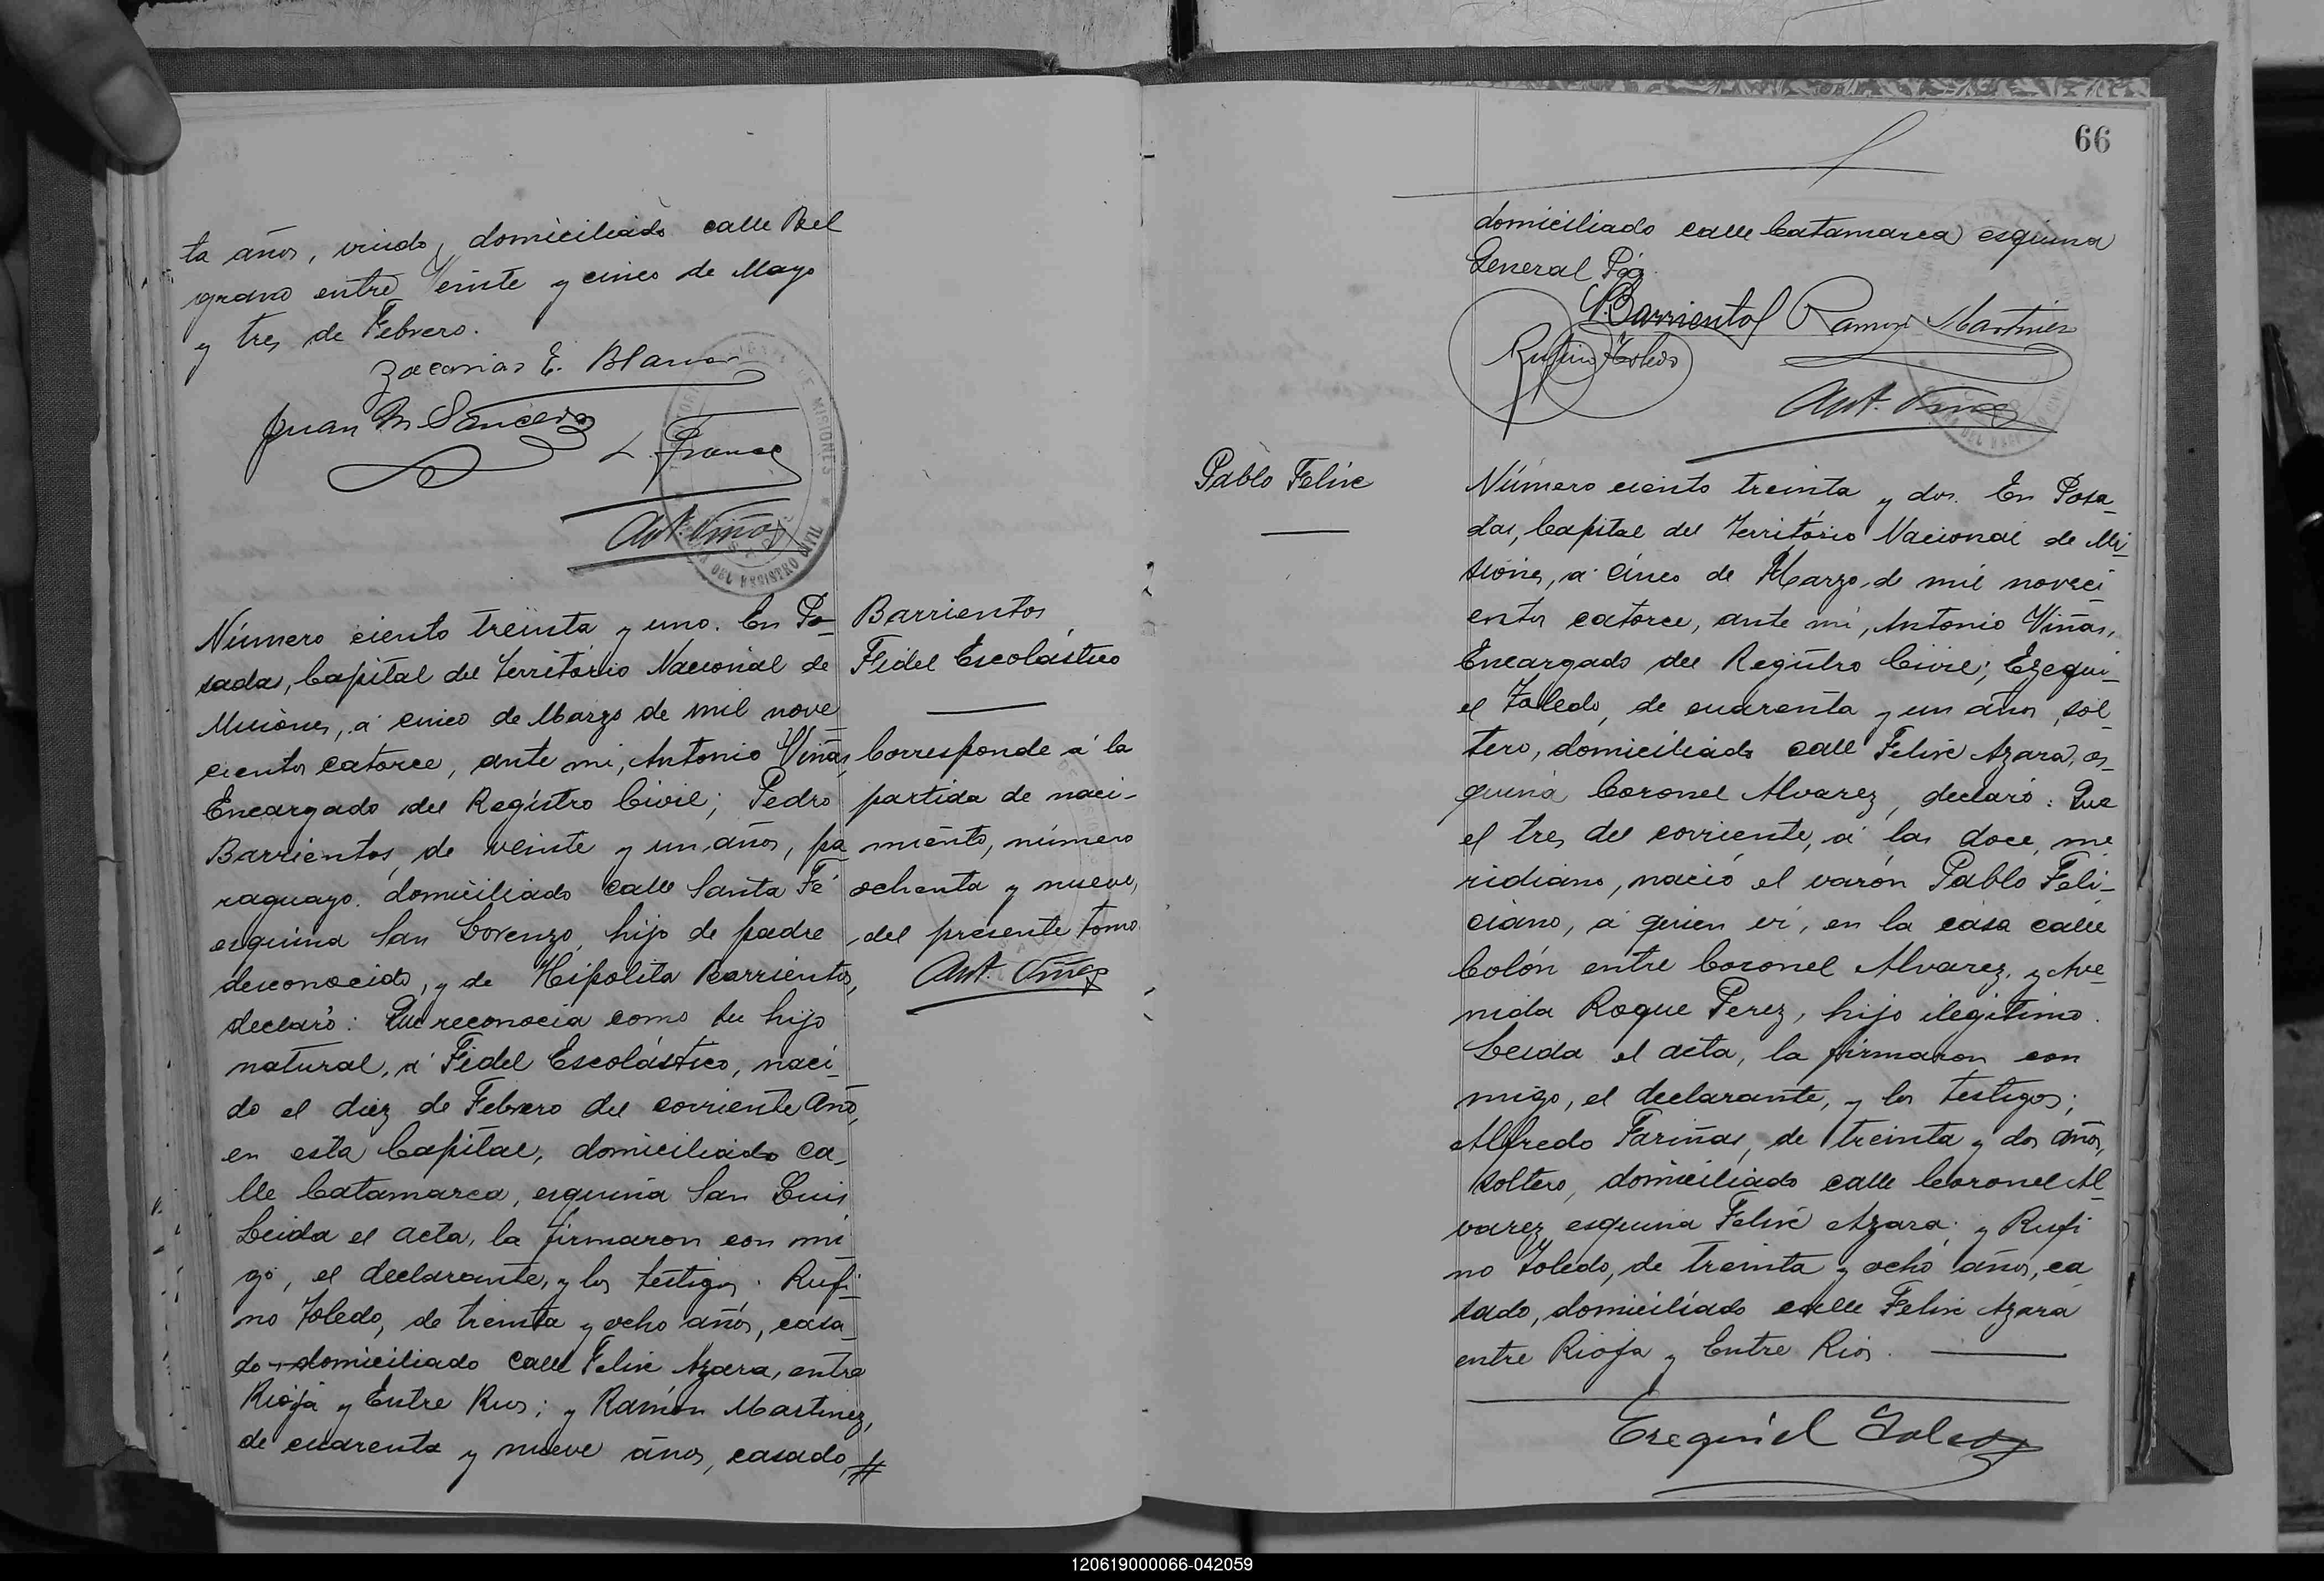 ta años, viudo, domiciliado calle Bel
grano entre Veinte y cinco de Mayo
y tres de Febrero.
Zacarias E. Blanco
Juan
L. Franco
Ant. Viñas
Número ciento treinta y uno. En Po-
sadas, Capital del Territorio Nacional de
Misiones, á cinco de Marzo de mil nove
cientos catorce, ante mi, Antonio Viñas,
Encargado del Registro Civil; Pedro
Barrientos, de veinte y un años, pa
raguayo. domiciliado calle Santa Fé
esquina San Lorenzo, hijo de padre
desconocido, y de Hipolita Barrientos,
declaró: Que reconocia como su hijo
natural, á Fidel Escolástico, naci-
do el diez de Febrero del corriente año,
en esta Capital, domiciliado ca-
lle Catamarca, esquina San Luis
Leida el acta, la firmaron con mi
go, el declarante, y los testigos: Rufi-
no Toledo, de treinta y ocho años, casa-
do domiciliado calle Felix Azara, entre
Rioja y Entre Rios; y Ramón Martinez,
de cuarenta y nueve años, casado, #
Barrientos
Fidel Escolástico
Corresponde á la
partida de naci-
miento, número
ochenta y nueve,
del presente tomo
Ant. Viñas
66
domiciliado calle Catamarca esquina
General Páz.
P. Barrientos Ramon Martinez
Rufino Toledo
Ant. Viñas
Pablo Felix
Número ciento treinta y dos. En Posa-
das, Capital del Territorio Nacional de Mi-
siones, á cinco de Marzo de mil noveci
entos catorce, ante mi, Antonio Viñas,
Encargado del Registro Civil; Ezequi-
el Toledo, de cuarenta y un años, sol-
tero, domiciliado calle Felix Azara, es-
quina Coronel Alvarez, declaró: Que
el tres del corriente, á las doce, me
ridiano, nació el varón Pablo Feli-
ciano, á quien vi, en la casa calle
Colón entre Coronel Alvarez, y Ave-
nida Roque Perez, hijo ilegitimo.
Leida el acta, la firmaron con
migo, el declarante, y los testigos;
Alfredo Fariñas, de treinta y dos años,
soltero, domiciliado calle Coronel Al-
varez esquina Felix Azara; y Rufi
no Toledo, de treinta y ocho años, ca
sado, domiciliado calle Felix Azara
entre Rioja y Entre Rios.
Ezequiel Toledo
120619000066-042059